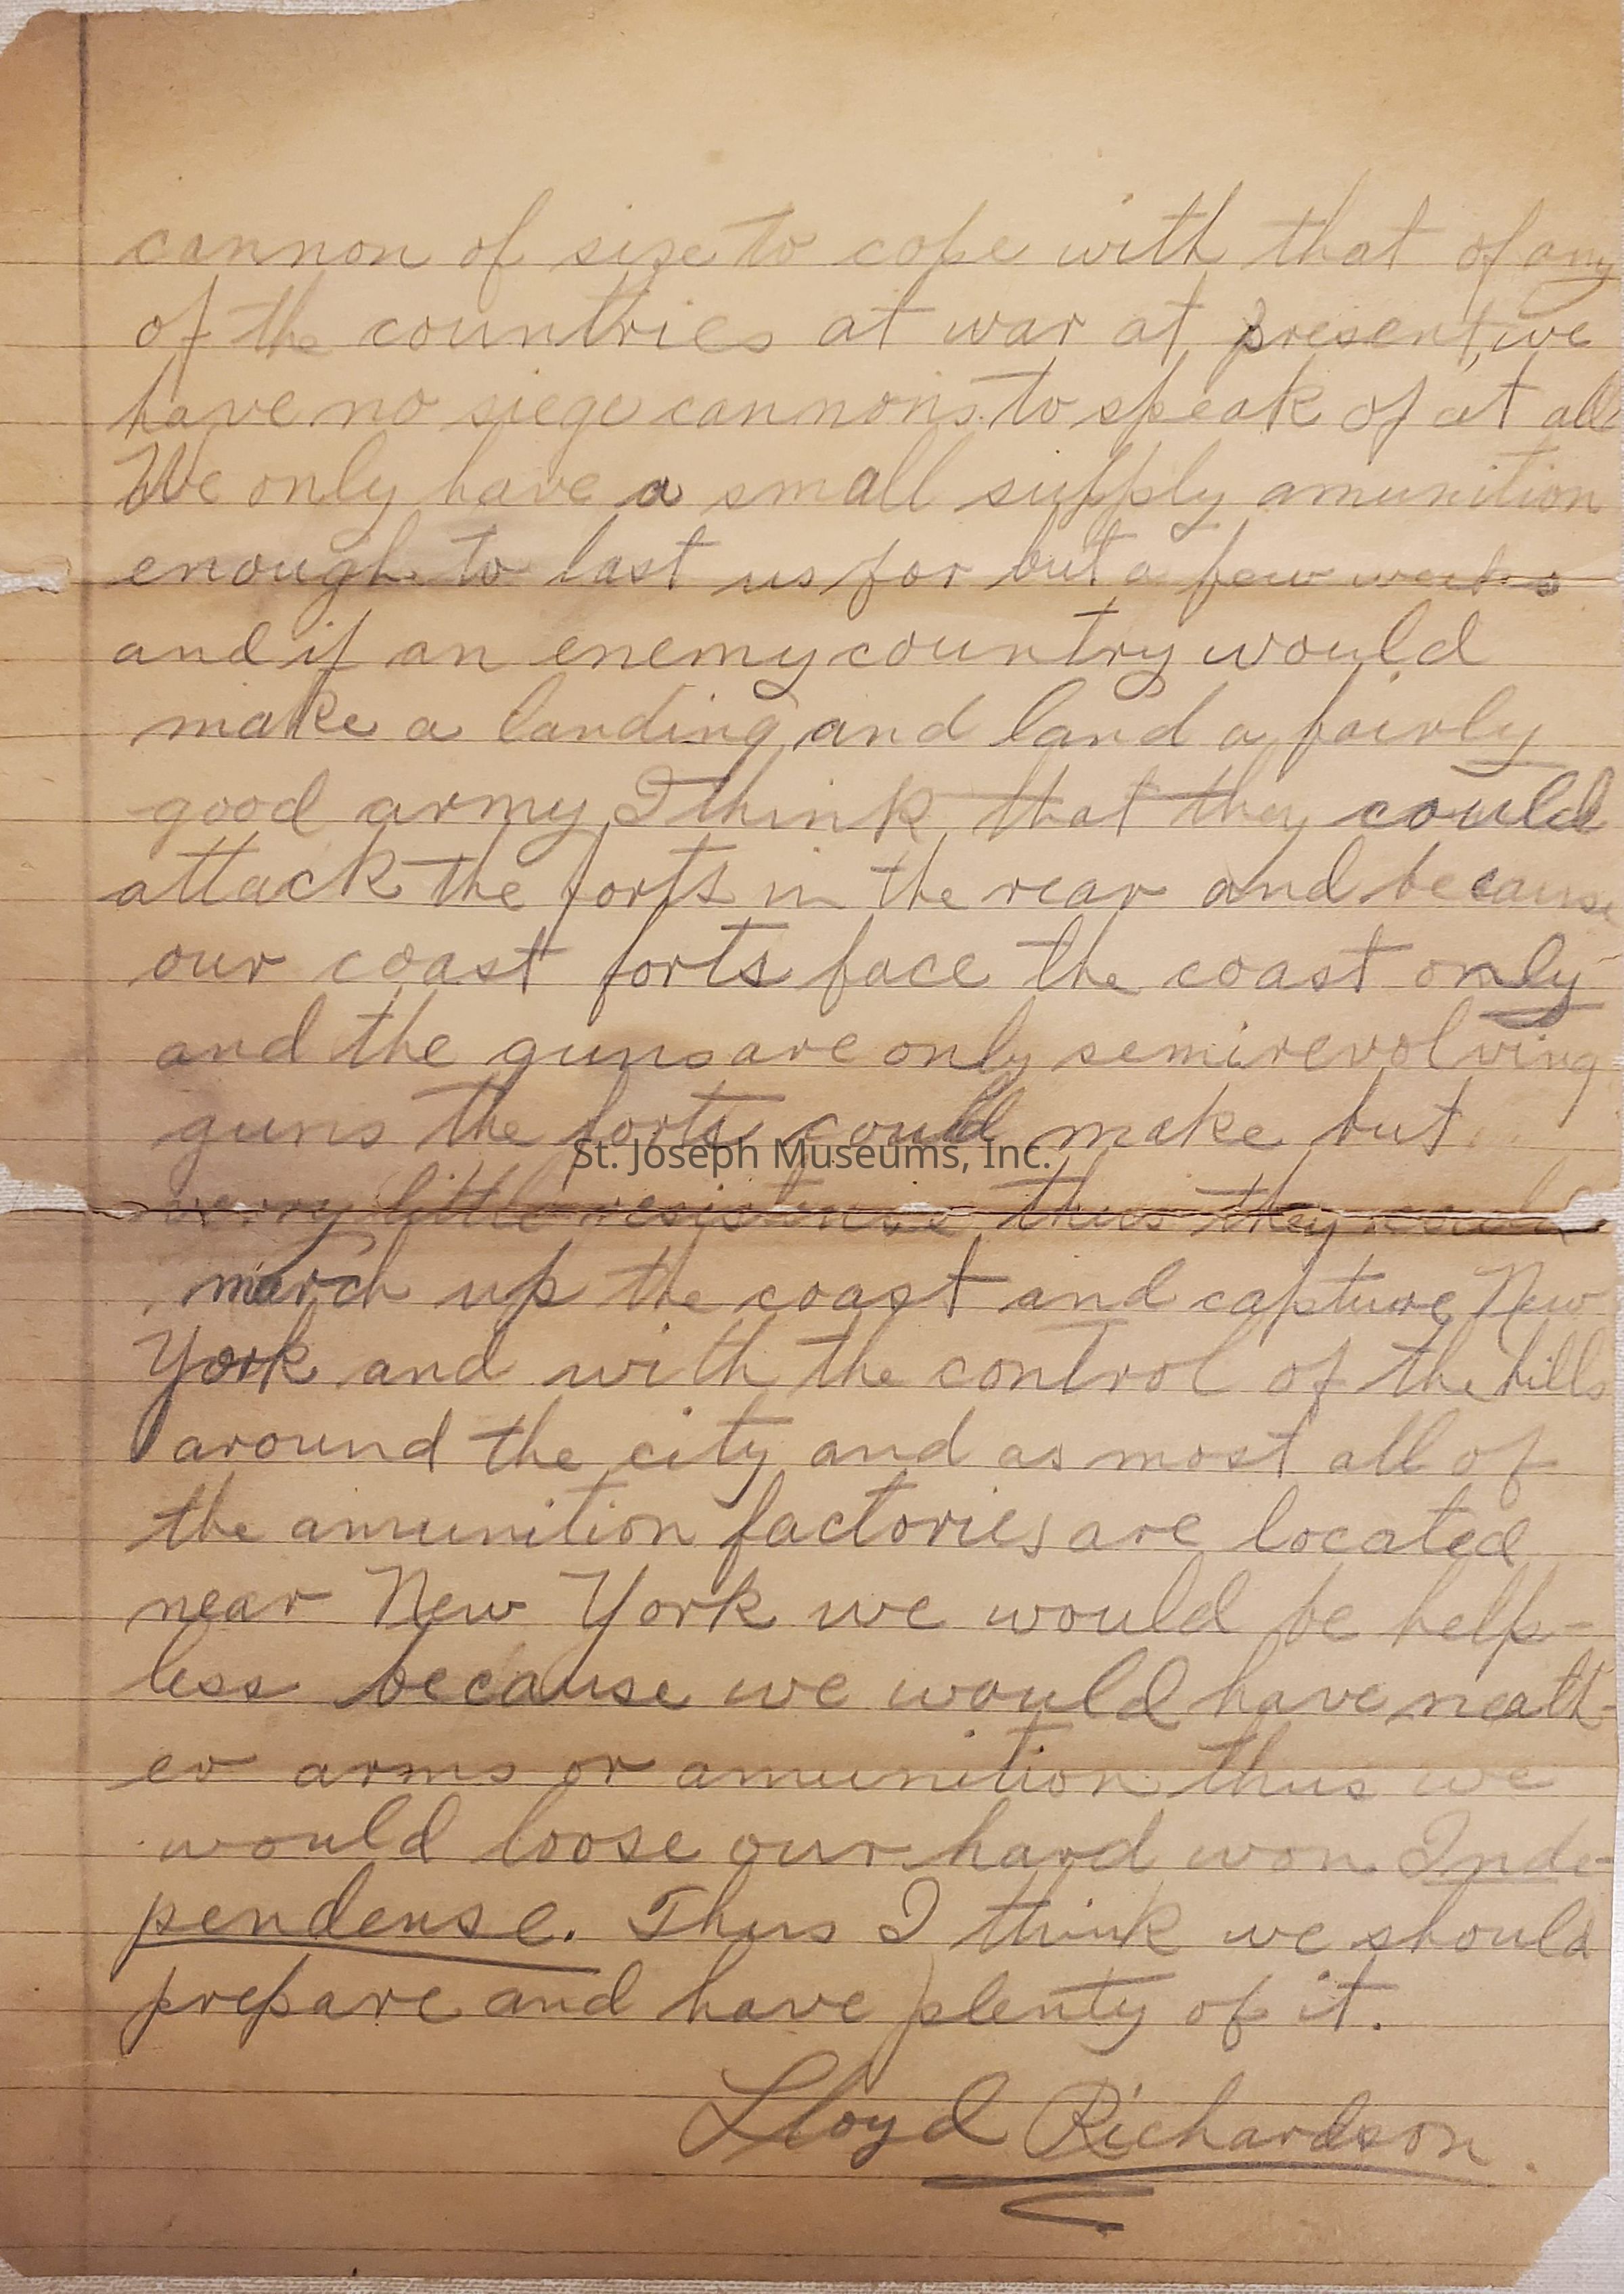 cannon of size to cope with that of any
of the countries at war at present, we
have no siege cannons to speak of at all
We only have a small supply amunition
enough to last us for but a few weeks
and if an enemy country would
make a landing and land a fairly
good army I think that they could
attack the forts in the rear and because
our coast forts face the coast only
and the guns are only semirevolving
guns the forts could make but
St. Joseph Museums, Inc.
verry little resistense thus they could
march up the coast and capture New
York and with the control of the hills
around the city and as most all of
the amunition factories are located
near New York we would be help-
less because we would have neath-
er arms or amunition thus we
would loose our hard won Inde-
pendense. Thus I think we should
prepare and have plenty of it.
Lloyd Richardson.